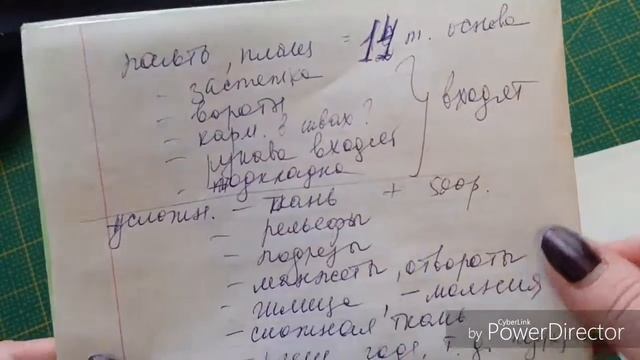 пальто, плащ = 12 т. основа
- застежка
- ворот
- карм. в швах?
- рукава входят
- подкладка
входят
усложн. - ткань + 500р.
- рельефы
- подрезы
- манжеты, отвороты
- шлица, - молния
- сложная ткань
by CyberLink PowerDirector